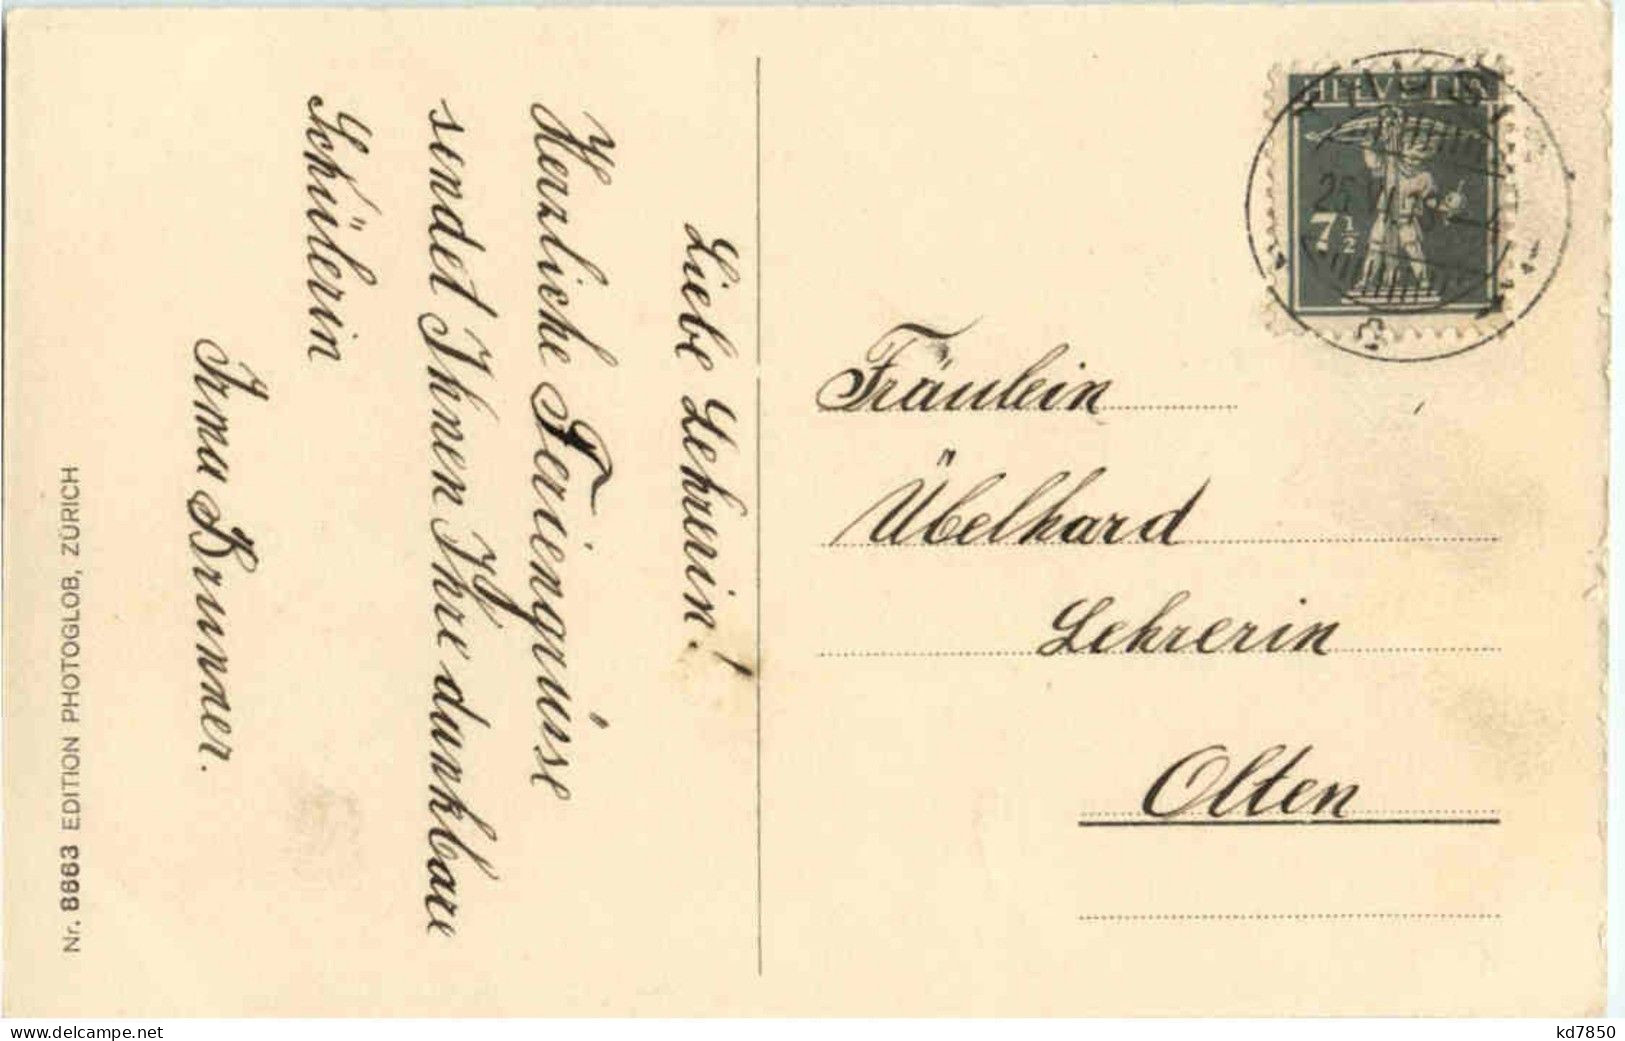 Liebe Lehrerin!
Herzliche Feriengrüsse
sendet Ihnen Ihre dankbare
Schülerin
Irma Brunner.
Nr. 8663 EDITION PHOTOGLOB, ZÜRICH
HELVETIA
25. VII.
7½
Fräulein
Übelhard
Lehrerin
Olten
www.delcampe.net
kd7850